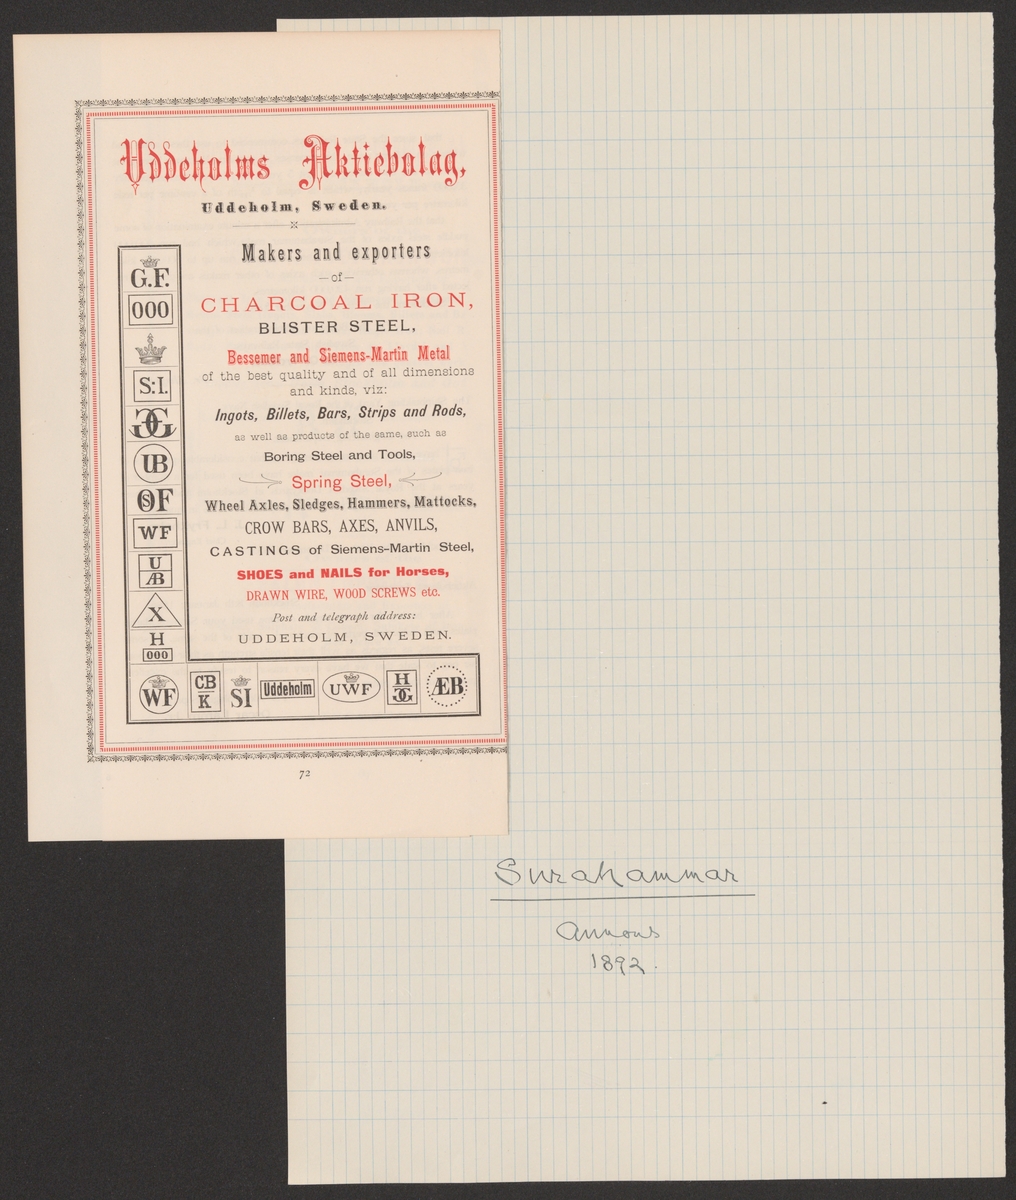 Uddeholms Aktiebolag,
Uddeholm, Sweden.
Makers and exporters
—of—
CHARCOAL IRON,
BLISTER STEEL,
Bessemer and Siemens-Martin Metal
of the best quality and of all dimensions
and kinds, viz:
Ingots, Billets, Bars, Strips and Rods,
as well as products of the same, such as
Boring Steel and Tools,
Spring Steel,
Wheel Axles, Sledges, Hammers, Mattocks,
CROW BARS, AXES, ANVILS,
CASTINGS of Siemens-Martin Steel,
SHOES and NAILS for Horses,
DRAWN WIRE, WOOD SCREWS etc.
Post and telegraph address:
UDDEHOLM, SWEDEN.
G.F.
000
S:I.
UB
WF
U
ÆB
X
H
000
WF
CB
K
SI
Uddeholm
UWF
H
ÆB
72
Surahammar
Annons
1892.